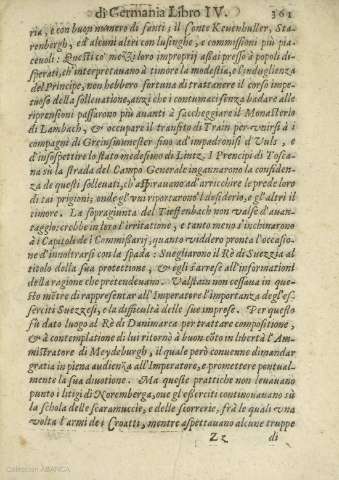 di Germania Libro IV. 361
ria, e con buon numero di fanti; il Conte Keuenhuller, Sta-
renbergh, ed alcuni altri con lusinghe, e commissioni più pia-
ceuoli: Questi co' mezi loro improprij assai presso à popoli di-
sperati, ch'interpretauano à timore la modestia, e l'induglienza
del Prencipe, non hebbero fortuna di trattenere il corso impe-
tuoso della solleuatione, anzi che i contumaci senza badare alle
riprensioni passarono più auanti à saccheggiare il Monasterio
di Lambach, & occupare il transito di Train per vnirsi à i
compagni di Greinsuimester sino ad impadronirsi d'Vuls, e
d'insospettire lo stato medesimo di Lintz. I Prencipi di Tosca-
na sù la strada del Campo Generale ingannarono la confiden-
za de questi solleuati, ch'aspirauano ad arricchire le prede loro
di tai prigioni; onde gl'vni riportarono'l desiderio, e gl'altri il
timore. La sopragiunta del Tieffenbach non valse d'auan-
taggio: crebbe in loro l'irritatione, e tanto meno s'inchinarono
à i Capitoli de i Commissarij; quanto viddero pronta l'occasio-
ne d'innoltrarsi con la spada: Suegliarono il Rè di Suezzia al
titolo della sua protettione, & egli s'arrese all'informationi
della ragione che pretendeuano. Valstain non cessaua in que-
sto mètre di rappresentar all'Imperatore l'importanza degl'es-
serciti Suezzesi, e la difficultà delle sue imprese. Per questo
fù dato luogo al Rè di Danimarca per trattare compositione,
& à contemplatione di lui ritornò à buon cōto in libertà l'Am-
ministratore di Meydeburgh, il quale però conuenne dimandar
gratia in piena audienza all'Imperatore, e promettere pontual-
mente la sua diuotione. Ma queste prattiche non leuauano
punto i litigi di Noremberga, oue gl'eserciti continouauano sù
la schola delle scaramuccie, e delle scorrerie, frà le quali vna
volta l'armi de i Croatti, mentre aspettauano alcune truppe
Zz di
Colección ABANCA